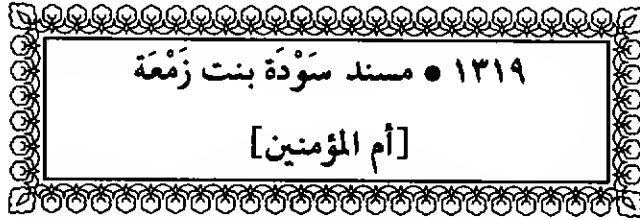 ١٣١٩ • مسند سَوْدَة بنت زَمْعَة
[أم المؤمنين]